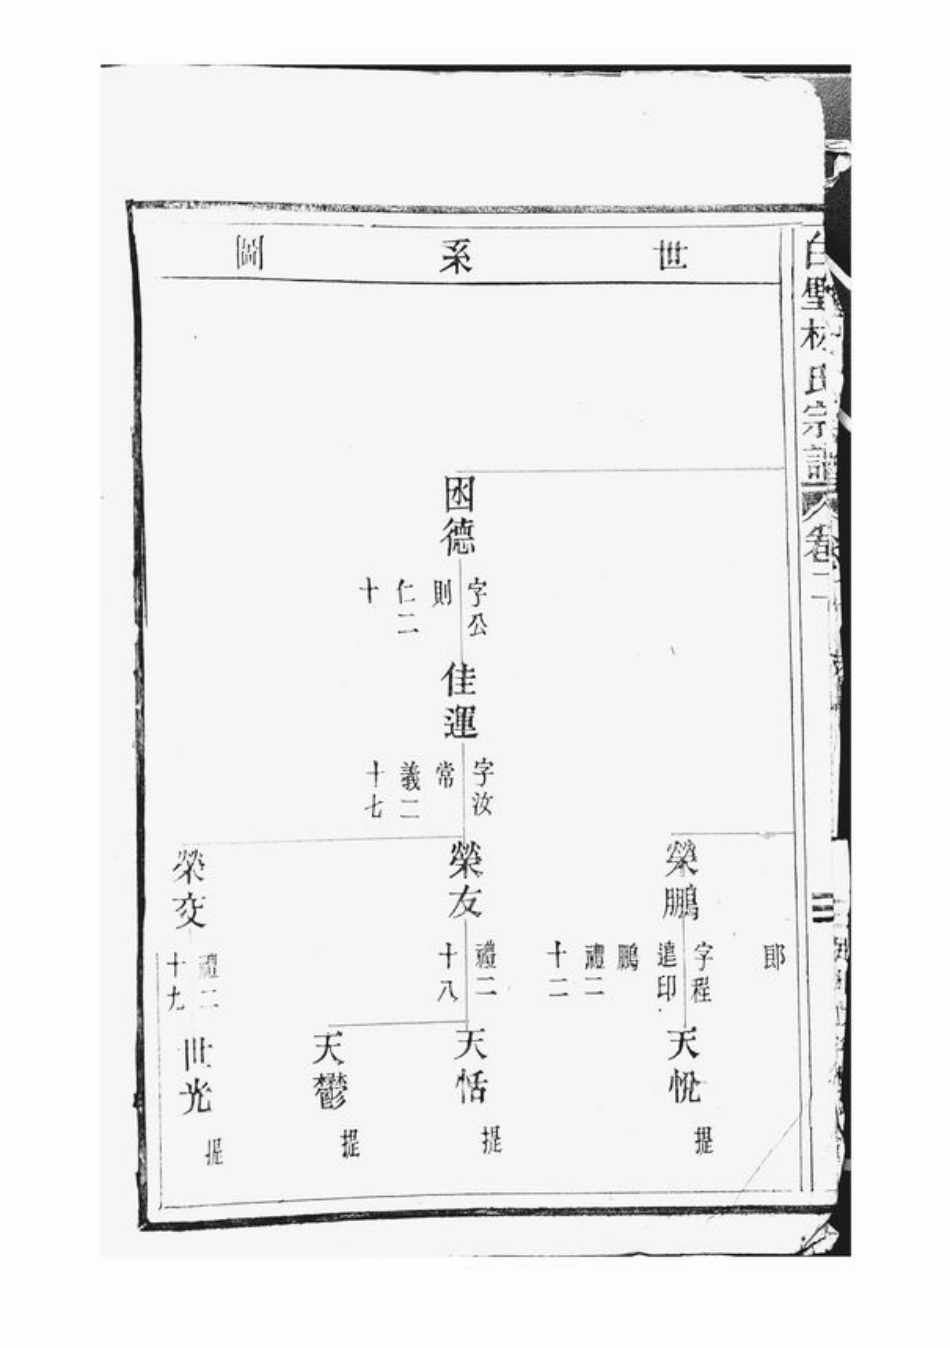 白璧林氏宗譜
卷二
三
世系圖
郎
榮鵬
字程
遠印
鵬
禮二
十二
天悅
提
囦德
字公
則
仁二
十
佳運
字汝
常
義二
十七
榮友
禮二
十八
天恬
提
天鬱
提
榮交
禮二
十九
世光
提